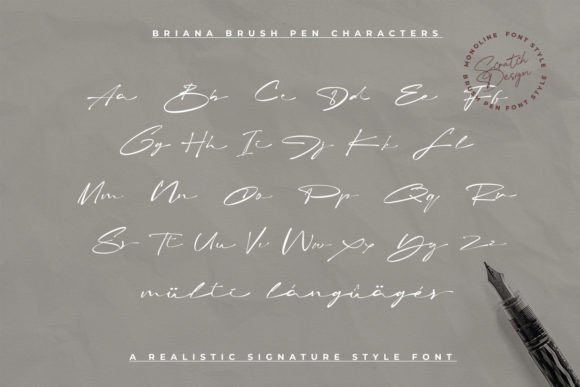 BRIANA BRUSH PEN CHARACTERS
MONOLINE FONT STYLE
Scratch
Design
BRUSH PEN FONT STYLE
Aa Bb Cc Dd Ee Ff
Gg Hh Ii Jj Kk Ll
Mm Nn Oo Pp Qq Rr
Ss Tt Uu Vv Ww Xx Yy Zz
múltí lángûägés
A REALISTIC SIGNATURE STYLE FONT